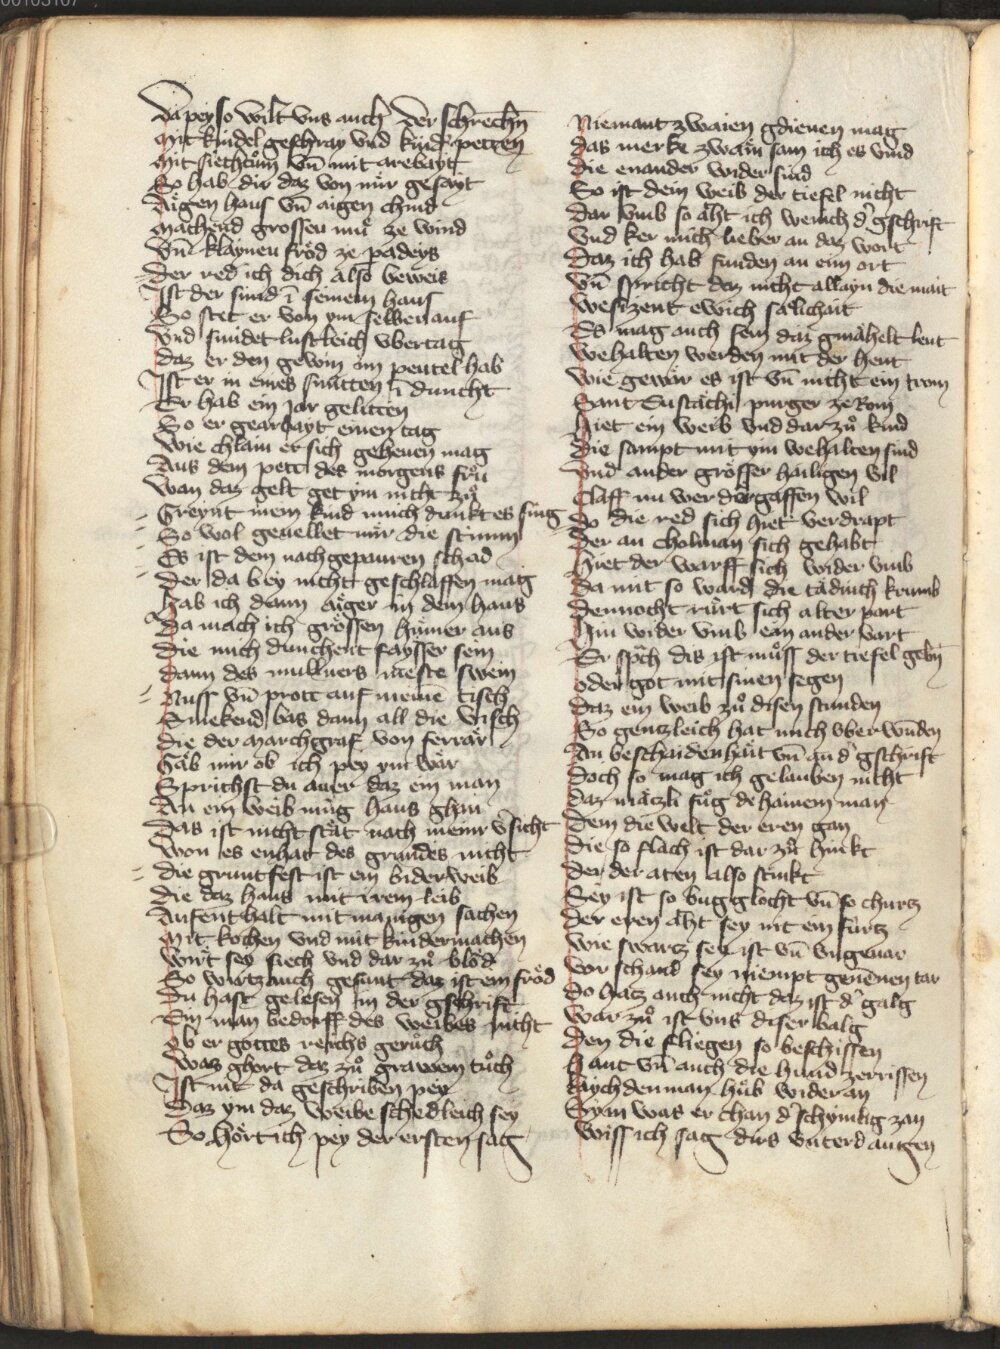 Da pey so wilt vns auch der schrechñ
Mit kindel geschray vnd kindpetten
Mit siechtům vñ mit arebayt
So hab dir daz von mir gesayt
Aigen haus vñ aigen chind
Machend grossen mů ze wind
Vñ klaynen fröd ze paders
Der red ich dich also beweis
Ist der sund ī seinem haus
So stet er von ym selben auf
Vnd sundet lustleich vbertag
Daz er den gewin im peutel hab
Ist er in eines smitten ī duncht
Er hab ein jar gelitten
So er gearbayt einen tag
Wie chlain er sich geheuen mag
Aus dem pett des morgens frů
Wan daz gelt get ym nicht zů
Greynt mein kind mich dunkt es sing
So wol geuellet mir die stimm
Es ist dem nachgepauren schad
Der da bey nicht geschlaffen mag
Hab ich dann aiger in dem haus
Da mach ich grössen hůner aus
Die mich dunchent faysser sein
Dann des mullners meste swein
Nuss vñ prott auf meinē tisch
Smekend bas dann all die visch
Die der Marchgraf von ferrär
Gäb mir ob ich pey ym wär
Sprichst du auer daz ein man
An ein weib müg haus ghan
Das ist nicht stät nach meinr v̄sicht
Won es enhat des grundes nicht
Die gruntfest ist ein biderweib
Die daz haus mit irem leib
Aufenthalt mit manigen sachen
Mit kochen vnd mit kindermachen
Wirt sey siech vnd dar zů blöd
So wirtz auch gesunt daz ist ein fröd
Du hast gelesen in der gschrift
Ein man bedorff des weibes nicht
Ob er gottes reichs gerůch
Waz ghort daz zů grawem tůch
Ist nit da geschriben pey
Daz ym daz weibe schedleich sey
So hört ich pey der ersten sag
Niemant zwaien gdienen mag
Das merk zwain sam ich es vind
Die enander wider sind
So ist dem weib der tiefel nicht
Dar vmb so äht ich wenich d' gschrift
Vnd ker mich lieber an daz wort
Daz ich hab funden an eim ort
Vñ spricht daz nicht allayn die mait
Wesizent ewich sälichait
Es mag auch sein daz gmähelt leut
Wehalten werden mit der heut
Wie gewär es ist vñ nicht ein tram
Sant Eustachi purger ze Rom
Hiet ein weib vnd dar zů kind
Die sampt mit ym wehalten sind
Vnd ander grösser hailigen vil
Claff nu wer do gaffen wil
Do die red sich hiet verdrapt
Der an Cholman sich gehabt
Hiet der warff sich wider vmb
Da mit so ward die tädinch krumb
Dennocht rürt sich alter part
Hin wider vmb ein ander vart
Er spch dis ist můss der tiefel gebñ
Oder got mit sinen segen
Daz ein weib zů disen stunden
So gentzleich hat mich vberwunden
An beschaidenhait vñ an d' gschrift
Doch so mag ich gelauben nicht
Daz mätzli fůg dehainem man
Dem die welt der eren gan
Die so flach ist dar zů hinkt
Der der aten also stinkt
Sey ist so bugglocht vñ so churtz
Der eren äht sey nit ein furtz
Wie swartz sey ist vñ vngenar
Vor schand sey niempt genēnen tar
So hatz auch nicht daz ist d' galg
War zů ist vns diser balg
Den die fliegen so beschissen
Hant vñ auch die hund zerrissen
Raychdenman hůb wider an
Syan was er chan d' schymlig zan
Wiss ich sag dirs vnter d augen